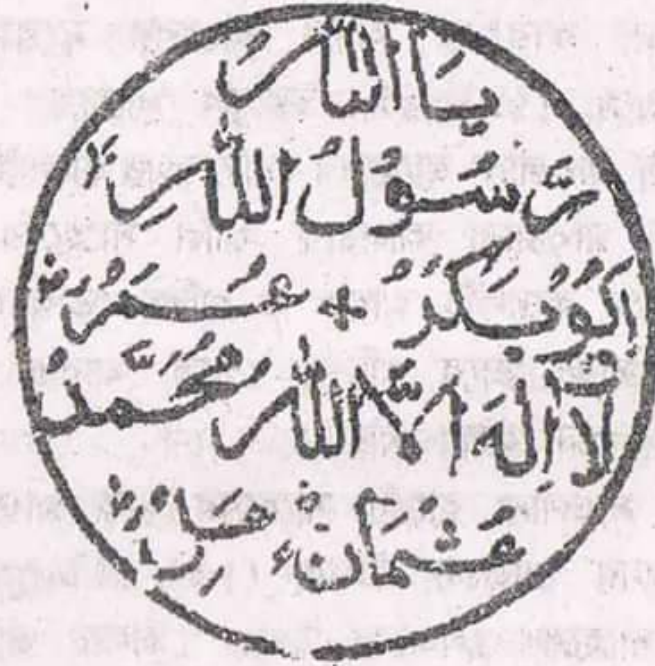 يَا اللّٰهُ
رَّسُوْلُ اللّٰهِ
اَبُوْبَكَرُ + عُمَرُ
لَآ اِلٰهَ اِلَّا اللّٰهُ مُحَمَّدُ
عُثْمَانُ